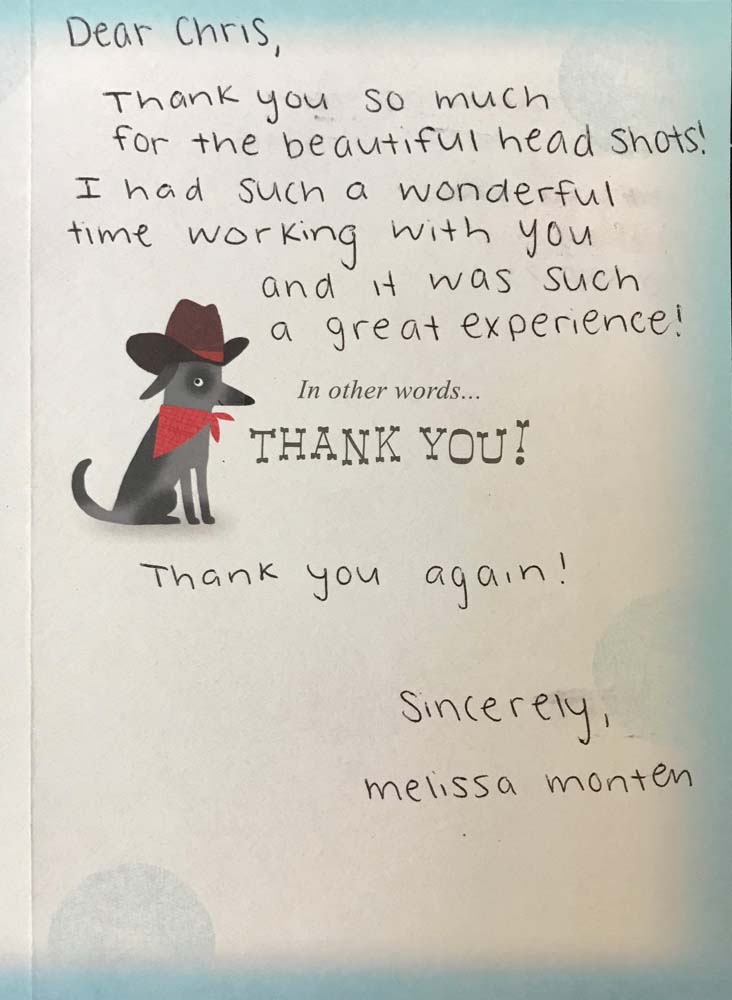 Dear Chris,
Thank you so much
for the beautiful head shots!
I had such a wonderful
time working with you
and it was such
a great experience!
In other words...
THANK YOU!
Thank you again!
Sincerely,
melissa monten